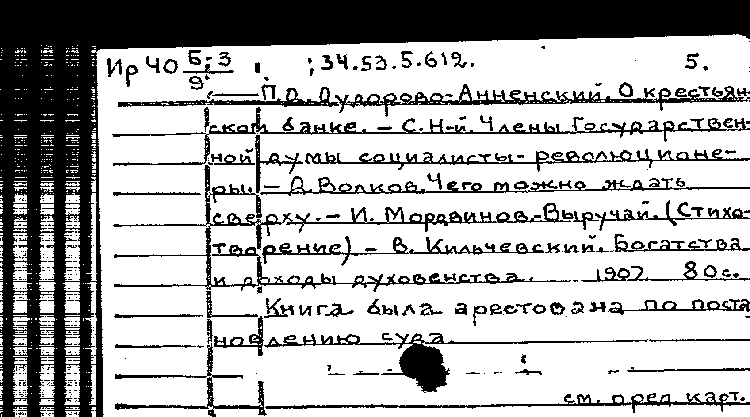 Ир 40 Б-3/9 ; 34.53.5.612. 5.
— П.О. Дудорово-Анненский. О крестьян-
ском банке. — С. Н-й. Члены Государствен-
ной думы социалисты-революционе-
ры. — Д. Волков. Чего можно ждать
сверху. — И. Мордвинов. - Выручай. (Стихо-
творение) — В. Кильчевский. Богатства
и доходы духовенства. 1907. 80 с.
Книга была арестована по поста
новлению суда.
см. пред. карт.